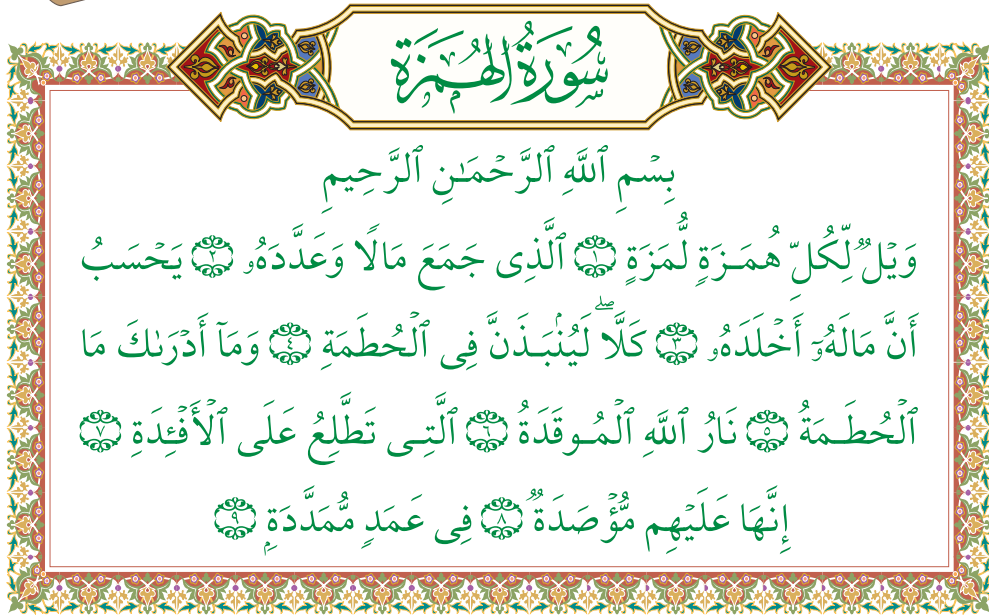 سُورَةُ الهُمَزَةِ
بِسْمِ ٱللَّهِ ٱلرَّحْمَـٰنِ ٱلرَّحِيمِ
وَيْلٌ لِّكُلِّ هُمَـزَةٍ لُّمَزَةٍ ۝١ ٱلَّذِى جَمَعَ مَالًا وَعَدَّدَهُۥ ۝٢ يَحْسَبُ
أَنَّ مَالَهُۥٓ أَخْلَدَهُۥ ۝٣ كَلَّا ۖ لَيُنۢبَـذَنَّ فِى ٱلْحُطَمَةِ ۝٤ وَمَآ أَدْرَىٰكَ مَا
ٱلْحُطَـمَةُ ۝٥ نَارُ ٱللَّهِ ٱلْمُـوقَدَةُ ۝٦ ٱلَّتِـى تَطَّلِعُ عَلَى ٱلْأَفْـِٔدَةِ ۝٧
إِنَّهَا عَلَيْهِم مُّؤْصَدَةٌ ۝٨ فِى عَمَدٍ مُّمَدَّدَةٍۭ ۝٩